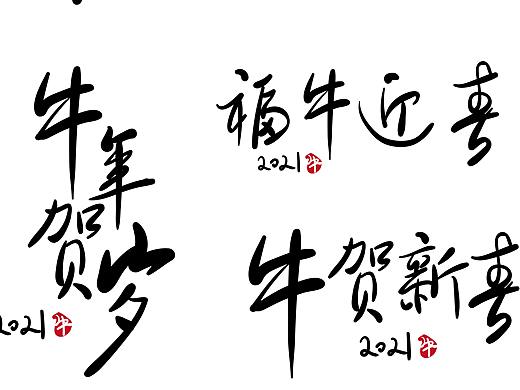 牛年贺岁
2021 牛
福牛迎春
2021 牛
牛贺新春
2021 牛